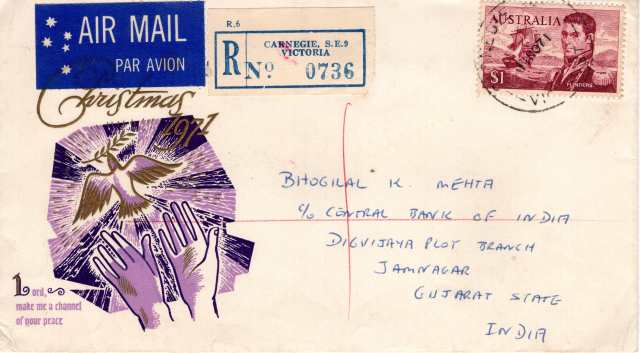 AIR MAIL
PAR AVION
R.6
CARNEGIE, S.E.9
VICTORIA
R No 0736
AUSTRALIA
$1
FLINDERS
Christmas
1971
BHOGILAL K. MEHTA
c/o CENTRAL BANK OF INDIA
DIGVIJAYA PLOT BRANCH
JAMNAGAR
GUJARAT STATE
INDIA
Lord,
make me a channel
of your peace